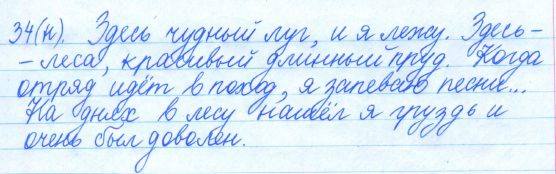 34(н). Здесь чудный луг, и я лежу. Здесь-
- леса, красивый длинный пруд. Когда
отряд идёт в поход, я запеваю песни...
На днях в лесу нашёл я груздь и
очень был доволен.